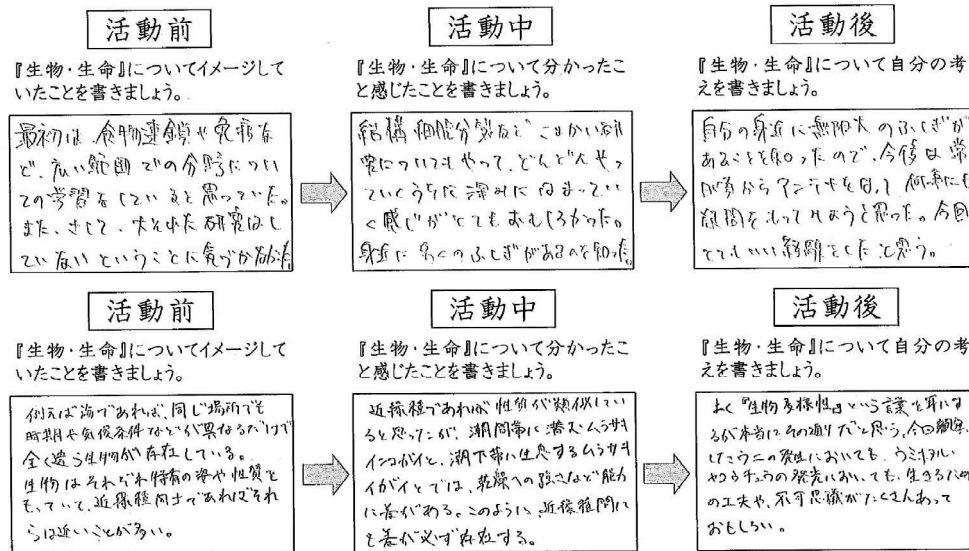 活動前
『生物・生命』についてイメージして
いたことを書きましょう。
最初は、食物連鎖や免疫な
ど、広い範囲での分野につい
ての学習をしていると思っていた。
また、さして、大それた研究はし
ていないということに気づかなかった
活動中
『生物・生命』について分かったこ
と感じたことを書きましょう。
結構細胞分裂など こまかい研
究についてもやって、どんどんやっ
ていくうちに深みにはまってい
く感じがとてもおもしろかった。
身近に多くのふしぎがあるのを知った。
活動後
『生物・生命』について自分の考
えを書きましょう。
自分の身近に無限大のふしぎが
あることを知ったので、今後は常
からアンテナをはって 何事にも
疑問をもってみようと思った。今回
とてもいい経験をしたと思う。
活動前
『生物・生命』についてイメージして
いたことを書きましょう。
例えば海であれば、同じ場所でも
時期や気候条件などが異なるだけで
全く違う生物が存在している。
生物はそれぞれ特有の姿や性質を
もっていて、近縁種同士であればそれ
らは近いことが多い。
活動中
『生物・生命』について分かったこ
と感じたことを書きましょう。
近縁種であれば性質が類似してい
ると思ったが、潮間帯に潜むムラサキ
インコガイと、潮下帯に生息するムラサキ
イガイとでは、乾燥への強さなど能力
に差がある。このように、近縁種間に
も差が必ず存在する。
活動後
『生物・生命』について自分の考
えを書きましょう。
よく『生物多様性』という言葉を耳にす
るが本当にその通りだと思う。今回観察
したウニの発生においても、ウミホタル
やコウチュウの発光においても、生きるため
の工夫や、不可思議がたくさんあって
おもしろい。